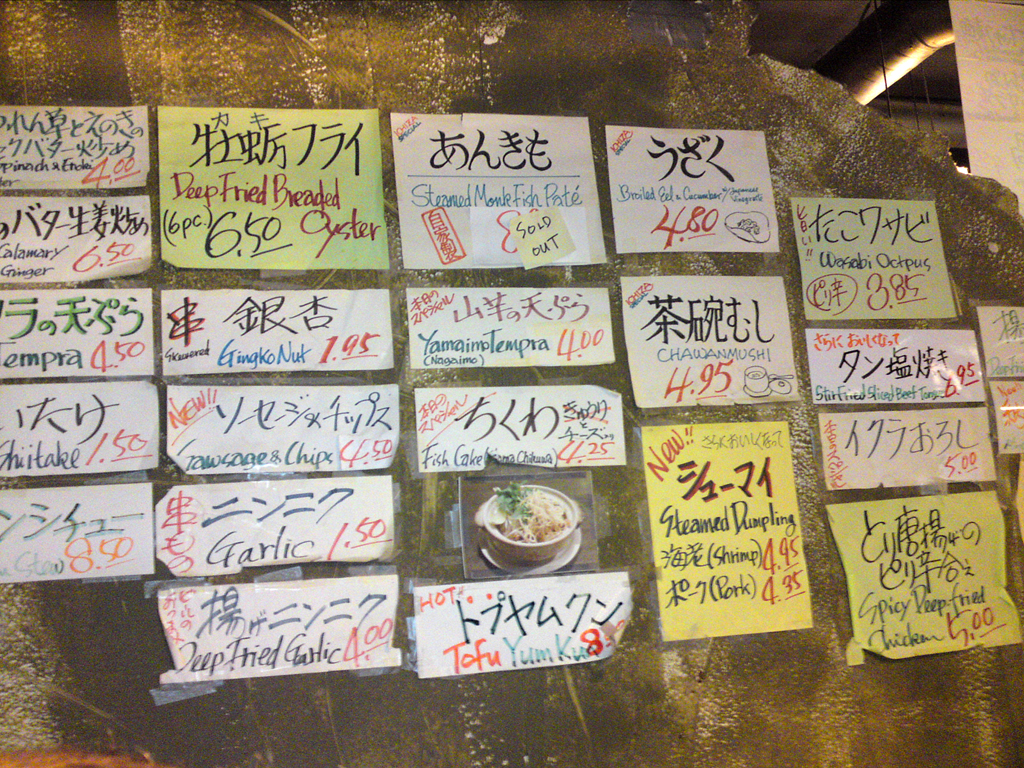 れん草とえのきの
クバター炒め
pinach & Enoki
4.00
バター生姜炒め
Calamary
Ginger
6.50
ラの天ぷら
Tempra 4.50
いたけ
Shiitake 1.50
ンシチュー
Stew 8.50
カキ
牡蛎フライ
Deep Fried Breaded
(6pc.) 6.50 Oyster
串 銀杏
Skewered GingkoNut 1.95
NEW!! ソセージ&チップス
Sawsage & Chips 4.50
串もの ニンニク
Garlic 1.50
揚げニンニク
Deep Fried Garlic 4.00
SPECIAL
あんきも
Steamed Monk Fish Paté
自家製
SOLD
OUT
本日のスペシャル
山芋の天ぷら
YamaimoTempra
(Nagaimo) 4.00
本日のスペシャル
ちくわ きゅうりとチーズ
Fish Cake 4.25
HOT トブヤムクン
Tofu Yum Kun 8
SPECIAL
うざく
Broiled Eel & Cucumber w/ Japanese
Vinegrete
4.80
茶碗むし
CHAWANMUSHI
4.95
New!! さらにおいしくなって
シューマイ
Steamed Dumpling
海老 (Shrimp) 4.95
ポーク (Pork) 4.35
たこワサビ
Wasabi Octpus
ピリ辛 3.85
さらにおいしくなって
タン塩焼き
Stir Fried Sliced Beef Tongue 6.95
イクラおろし
5.00
とり唐揚げの
ピリ辛合え
Spicy Deep-fried
Chicken 5.00